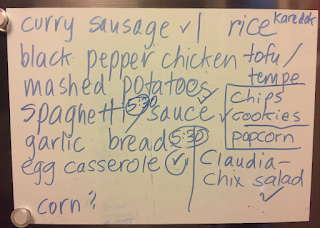 curry sausage ✓
black pepper chicken
mashed potatoes
spaghetti/sauce ✓
5:30
garlic bread 5:30
egg casserole ✓
corn?
rice Karedok
tofu/
tempe
Chips
✓ cookies
popcorn
Claudia-
Chix salad
✓